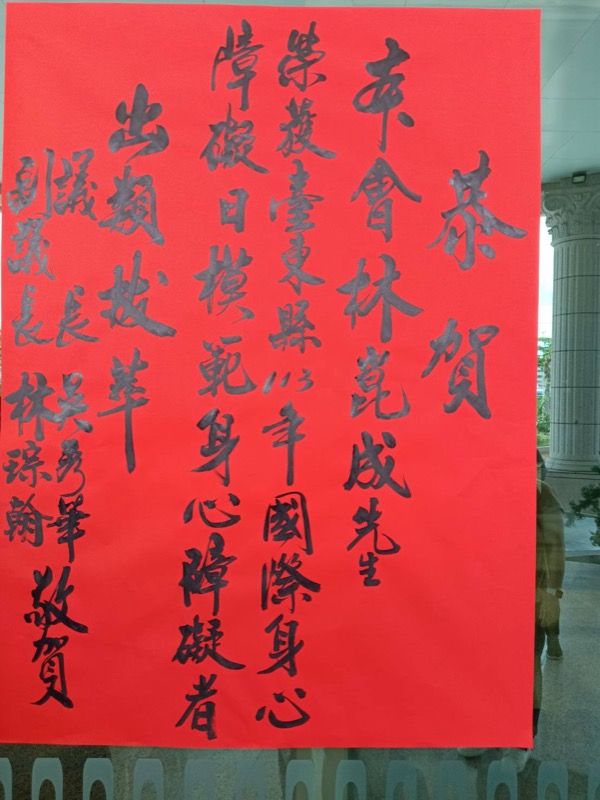 恭賀
本會林崑成先生
榮獲臺東縣113年國際身心
障礙日模範身心障礙者
出類拔萃
議長 吳秀華
副議長 林琮翰
敬賀